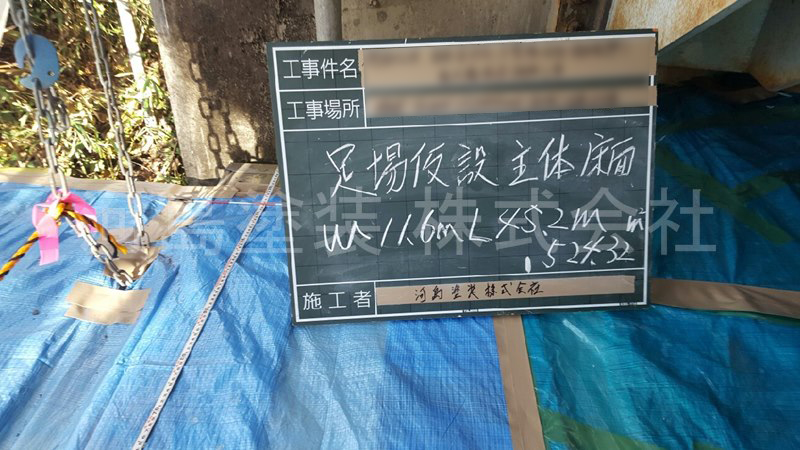 工事件名
工事場所
足場仮設 主体床面
W 11.6m L 45.2m
524.32 m²
施工者 河島塗装株式会社
河島塗装 株式会社